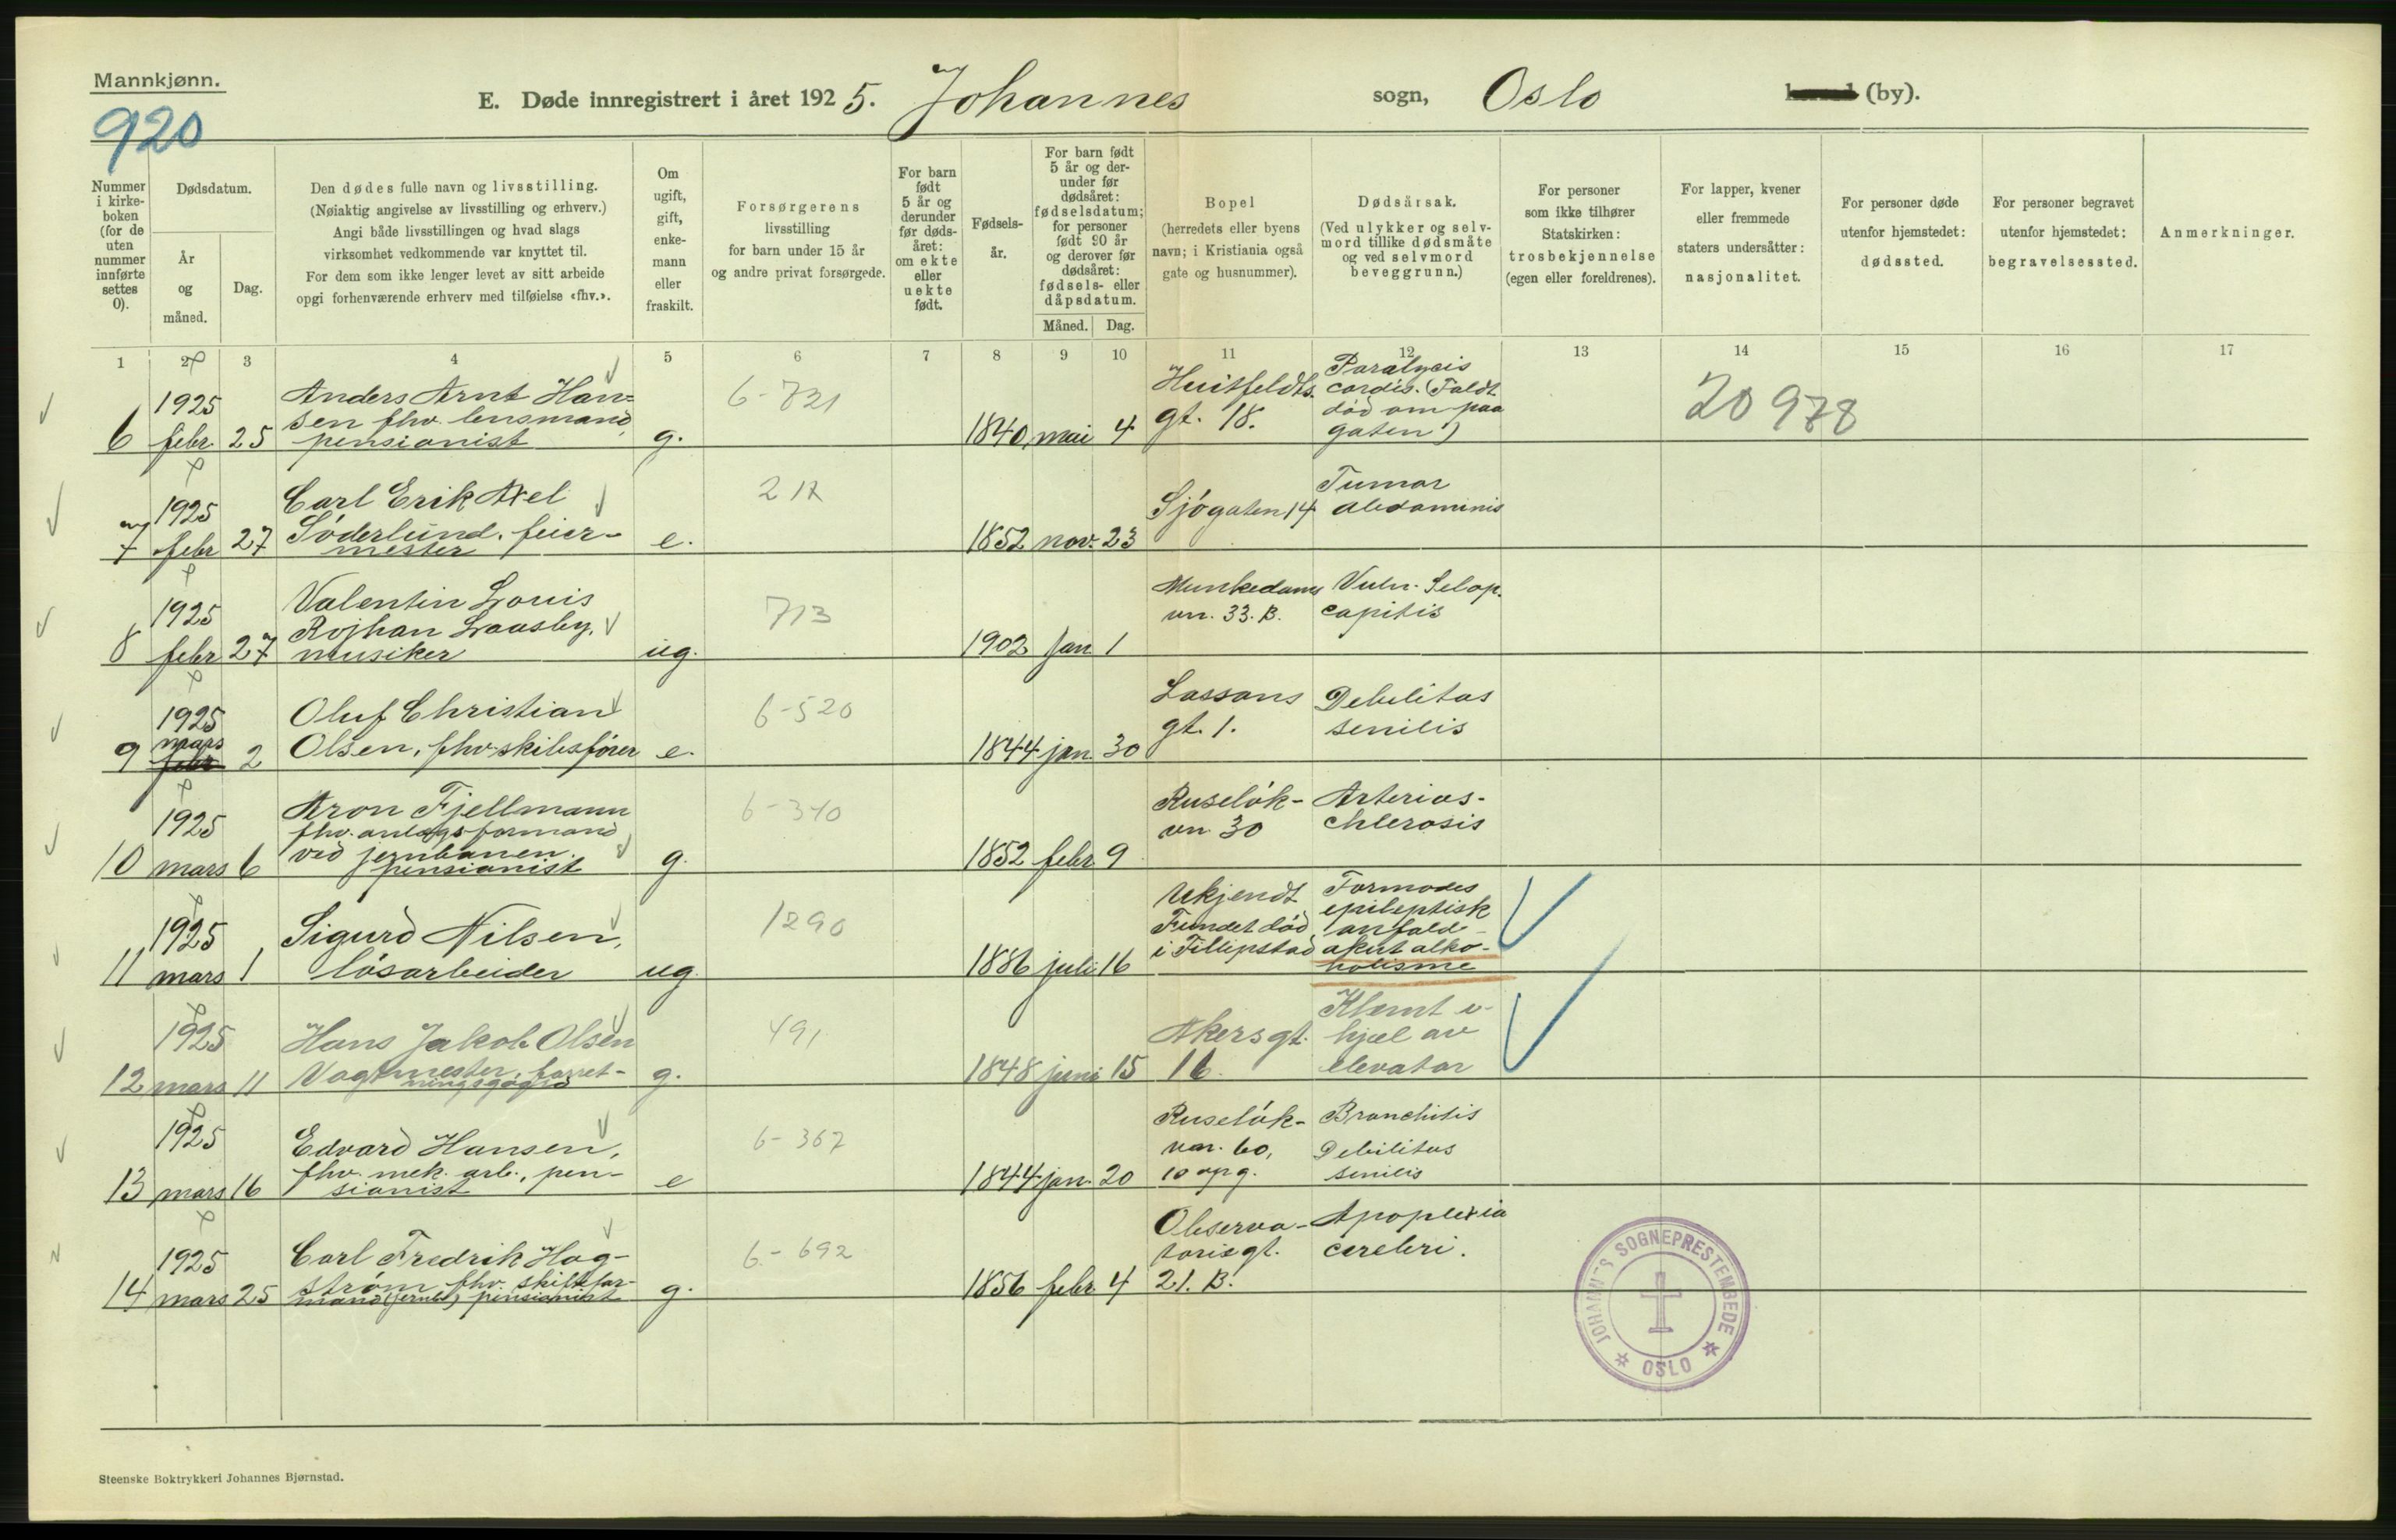 Mannkjønn.
920
E. Døde innregistrert i året 1925. Johannes sogn, Oslo (by).
Nummer i kirke-boken (for de uten nummer innførte settes 0).
Dødsdatum.
År og måned.
Dag.
Den dødes fulle navn og livsstilling.
(Nøiaktig angivelse av livsstilling og erhverv.)
Angi både livsstillingen og hvad slags
virksomhet vedkommende var knyttet til.
For dem som ikke lenger levet av sitt arbeide
opgi forhenværende erhverv med tilføielse «fhv.».
Om ugift, gift, enke-mann eller fraskilt.
Forsørgerens
livsstilling
for barn under 15 år
og andre privat forsørgede.
For barn født 5 år og derunder før døds-året: om ekte eller uekte født.
Fødsels-år.
For barn født 5 år og der-under før dødsåret: fødselsdatum; for personer født 90 år og derover før dødsåret: fødsels- eller dåpsdatum.
Måned. Dag.
Bopel
(herredets eller byens
navn; i Kristiania også
gate og husnummer).
Dødsårsak.
(Ved ulykker og selv-
mord tillike dødsmåte
og ved selvmord
beveggrunn.)
For personer
som ikke tilhører
Statskirken:
trosbekjennelse
(egen eller foreldrenes).
For lapper, kvener
eller fremmede
staters undersåtter:
nasjonalitet.
For personer døde
utenfor hjemstedet:
dødssted.
For personer begravet
utenfor hjemstedet:
begravelsessted.
Anmerkninger.
1 2 3 4 5 6 7 8 9 10 11 12 13 14 15 16 17
6 1925 febr 25
Anders Arnt Han=
sen fhv. lensmand,
pensionist
g. 6-721 1840 mai 4
Huitfeldts
gt. 18.
Paralysis
cordis. (Faldt
død om paa
gaten)
20978
7 1925 febr 27
Carl Erik Axel
Söderlund. feier-
mester
e. 217 1852 nov. 23
Sjøgaten 14
Tumor
abdominis
8 1925 febr 27
Valentin Louis
Rojhan Laasby,
musiker
ug. 713 1902 jan 1
Munkedams
vn. 33. B.
Vuln. Sclop.
capitis
9 1925 mars febr 2
Oluf Christian
Olsen, fhv. skibsfører
e. 6-520 1844 jan. 30
Lassons
gt. 1.
Debilitas
senilis
10 1925 mars 6
Aron Fjellmann
fhv. anlægsformand
ved jernbanen.
pensionist
g. 6-340 1852 febr 9
Ruseløk-
vn. 30
Arterios-
chlerosis
11 1925 mars 1
Sigurd Nilsen,
løsarbeider
ug. 1290 1886 juli 16
Ukjendt
Fundet død
i Fillipstad
Formodes
epileptisk
anfald-
akut alko-
holisme
12 1925 mars 11
Hans Jakob Olsen
Vagtmester, forret-
ningsgaard
g. 491 1848 juni 15
Akersgt.
16.
Klemt i-
hjel av
elevator
13 1925 mars 16
Edvard Hansen,
fhv. mek. arb., pen-
sionist
e 6-367 1844 jan. 20
Ruseløk-
vn. 60,
10 opg.
Bronchitis
Debilitas
senilis
14 1925 mars 25
Carl Fredrik Hag-
strøm fhv. skiftefor-
mand (jernb.), pensionist
g. 6-692 1856 febr. 4
Observa-
toriegt.
21. B.
Apoplexia
cerebri.
JOHANNES SOGNEPRESTEMBEDE
OSLO
Steenske Boktrykkeri Johannes Bjørnstad.